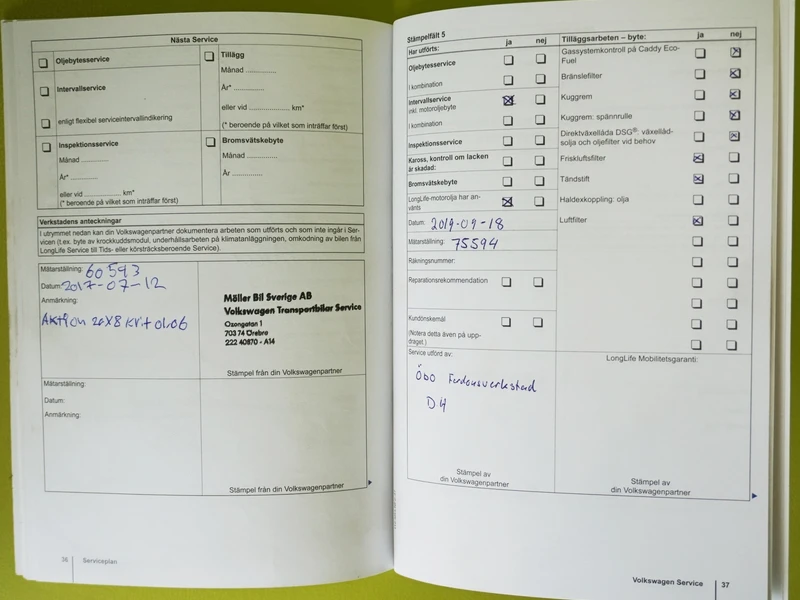 Nästa Service
Oljebytesservice
Intervallservice
enligt flexibel serviceintervallindikering
Inspektionsservice
Månad ............
År* ............
eller vid .................. km*
(* beroende på vilket som inträffar först)
Tillägg
Månad ..............
År* ..............
eller vid ................... km*
(* beroende på vilket som inträffar först)
Bromsvätskebyte
Månad ..............
År ..............
Verkstadens anteckningar
I utrymmet nedan kan din Volkswagenpartner dokumentera arbeten som utförts och som inte ingår i Ser-
vicen (t.ex. byte av krockkuddsmodul, underhållsarbeten på klimatanläggningen, omkodning av bilen från
LongLife Service till Tids- eller körsträcksberoende Service).
Mätarställning: 60543
Datum: 2017-07-12
Anmärkning:
Aktion 20X8 Krit 01.06
Möller Bil Sverige AB
Volkswagen Transportbilar Service
Ozongatan 1
703 74 Örebro
222 40870 - A14
Stämpel från din Volkswagenpartner
Mätarställning:
Datum:
Anmärkning:
Stämpel från din Volkswagenpartner
36 Serviceplan
Stämpelfält 5
Har utförts: ja nej
Oljebytesservice
I kombination
Intervallservice
inkl. motoroljebyte
I kombination
Inspektionsservice
Kaross, kontroll om lacken
är skadad:
Bromsvätskebyte
LongLife-motorolja har an-
vänts
Datum: 2019-09-18
Mätarställning: 75594
Räkningsnummer:
Reparationsrekommendation
Kundönskemål
(Notera detta även på upp-
draget.)
Service utförd av:
Öbo Fordonsverkstad
DH
Stämpel av
din Volkswagenpartner
Tilläggsarbeten – byte: ja nej
Gassystemkontroll på Caddy Eco-
Fuel
Bränslefilter
Kuggrem
Kuggrem: spännrulle
Direktväxellåda DSG®: växellåd-
solja och oljefilter vid behov
Friskluftsfilter
Tändstift
Haldexkoppling: olja
Luftfilter
LongLife Mobilitetsgaranti:
Stämpel av
din Volkswagenpartner
Volkswagen Service 37